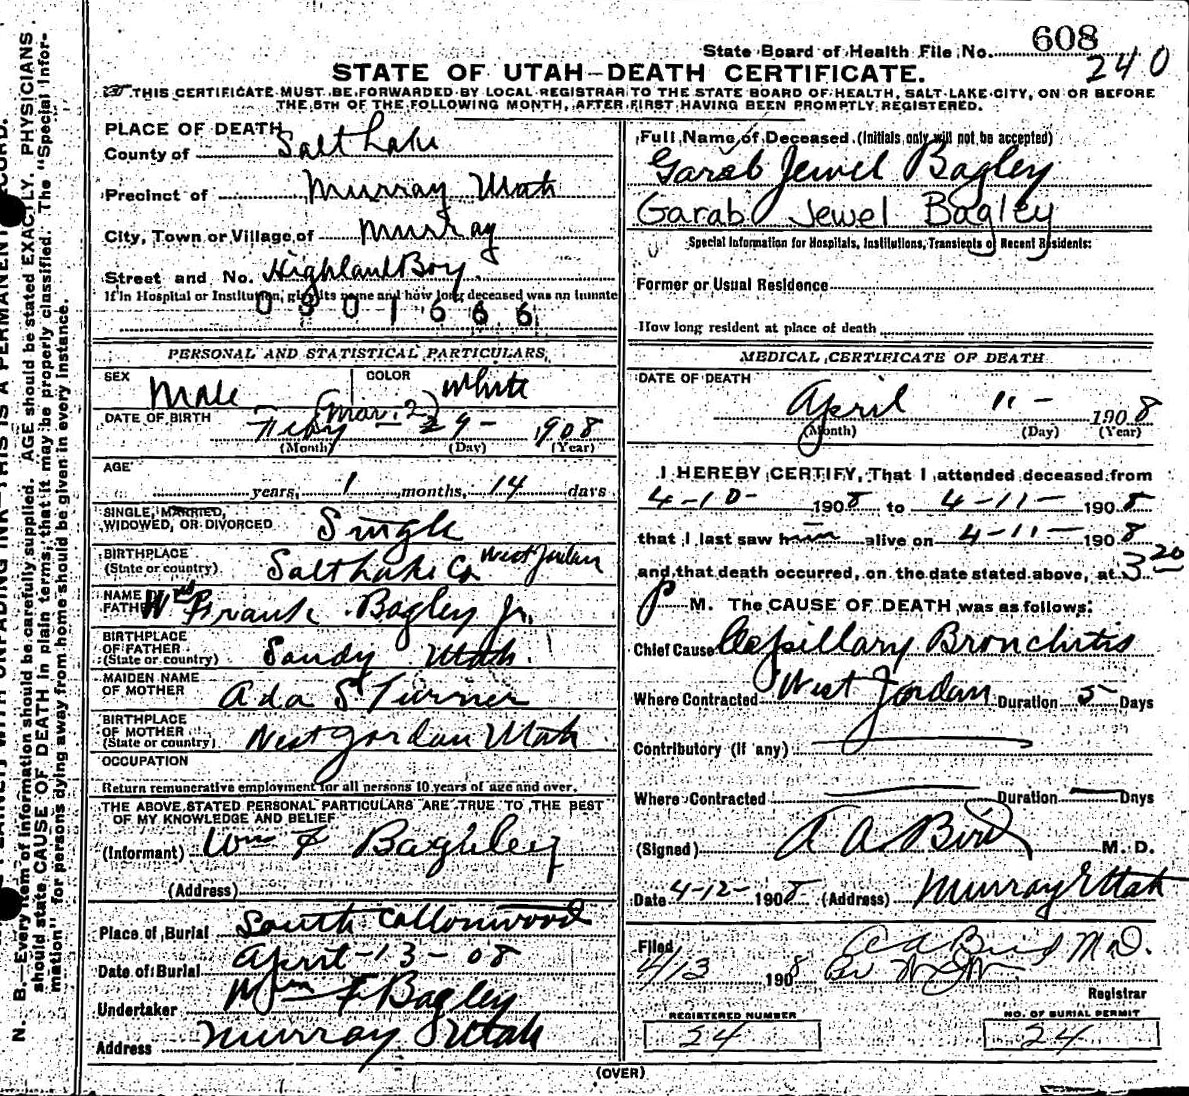 State Board of Health File No. 608
240
STATE OF UTAH—DEATH CERTIFICATE.
THIS CERTIFICATE MUST BE FORWARDED BY LOCAL REGISTRAR TO THE STATE BOARD OF HEALTH, SALT LAKE CITY, ON OR BEFORE
THE 5TH OF THE FOLLOWING MONTH, AFTER FIRST HAVING BEEN PROMPTLY REGISTERED.
PLACE OF DEATH
County of Salt Lake
Precinct of Murray Utah
City, Town or Village of Murray
Street and No. Highland Boy
If in Hospital or Institution, give its name and how long deceased was an inmate
0301666
PERSONAL AND STATISTICAL PARTICULARS
SEX Male COLOR White
DATE OF BIRTH Feby (Mar. 2) 29- 1908
(Month) (Day) (Year)
AGE
years, 1 months, 14 days
SINGLE, MARRIED,
WIDOWED, OR DIVORCED Single
BIRTHPLACE
(State or country) Salt Lake Co West Jordan
NAME OF
FATHER Wm Frank Bagley Jr.
BIRTHPLACE
OF FATHER
(State or country) Sandy Utah.
MAIDEN NAME
OF MOTHER Ada S Turner
BIRTHPLACE
OF MOTHER
(State or country) West Jordan Utah
OCCUPATION
Return remunerative employment for all persons 10 years of age and over.
THE ABOVE STATED PERSONAL PARTICULARS ARE TRUE TO THE BEST
OF MY KNOWLEDGE AND BELIEF
(Informant) Wm F Baghley
(Address)
Place of Burial South Cottonwood
Date of Burial April-13-08
Undertaker Wm F Bagley
Address Murray Utah
Full Name of Deceased (Initials only will not be accepted)
Garab Jewel Bagley
Garab Jewel Bagley
Special Information for Hospitals, Institutions, Transients or Recent Residents:
Former or Usual Residence
How long resident at place of death
MEDICAL CERTIFICATE OF DEATH
DATE OF DEATH
April 11- 1908
(Month) (Day) (Year)
I HEREBY CERTIFY, That I attended deceased from
4-10- 1908 to 4-11- 1908
that I last saw him alive on 4-11- 1908
and that death occurred, on the date stated above, at 3 20
P M. The CAUSE OF DEATH was as follows:
Chief Cause Capillary Bronchitis
Where Contracted West Jordan Duration 5 Days
Contributory (if any)
Where Contracted Duration Days
(Signed) A A Bird M. D.
Date 4-12- 1908 (Address) Murray Utah
Filed
4/13 1908 A A Bird M D.
Registrar
REGISTERED NUMBER
24
NO. OF BURIAL PERMIT
24
(OVER)
N. B.—Every item of information should be carefully supplied. AGE should be stated EXACTLY. PHYSICIANS
should state CAUSE OF DEATH in plain terms, that it may be properly classified. The "Special Infor-
mation" for persons dying away from home should be given in every instance.